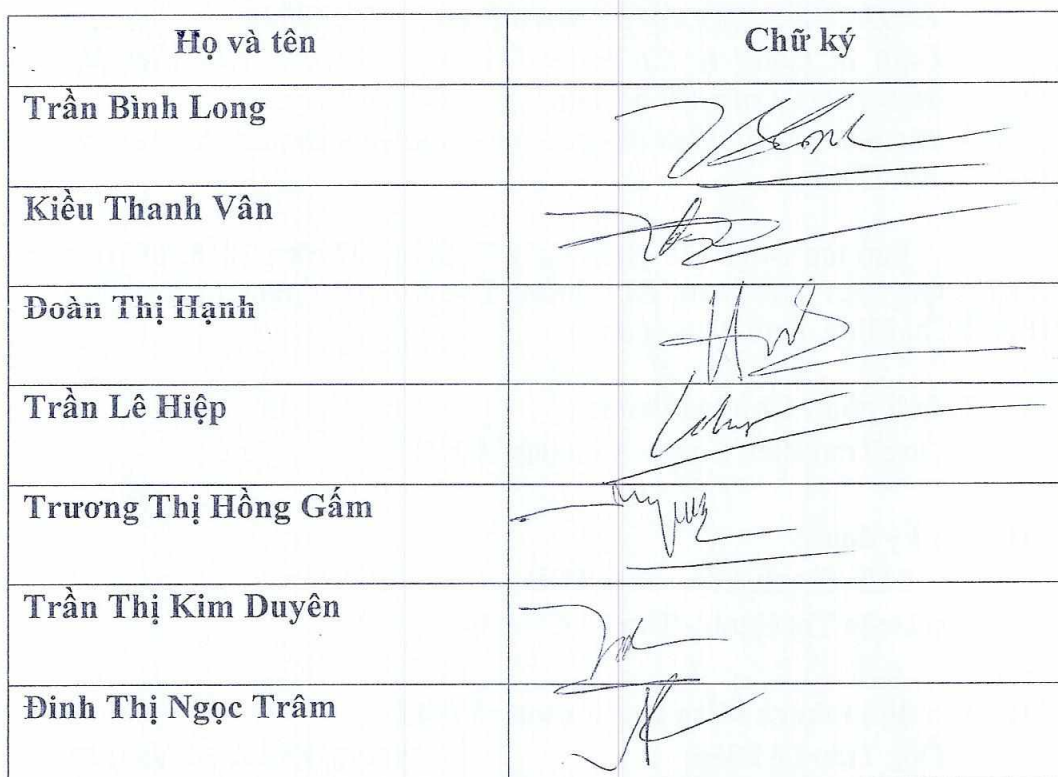 Họ và tên Chữ ký
Trần Bình Long
Kiều Thanh Vân
Đoàn Thị Hạnh
Trần Lê Hiệp
Trương Thị Hồng Gấm
Trần Thị Kim Duyên
Đinh Thị Ngọc Trâm